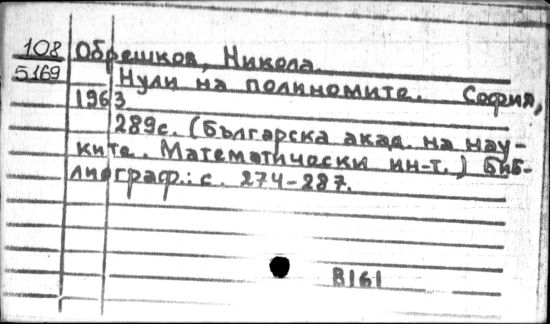 108
5169
Обрешков, Никола
Нули на полиномите. София,
1963
289с. (Българска акад. на нау-
ките. Математически ин-т.) Биб-
лиограф.: с. 274-287.
8161